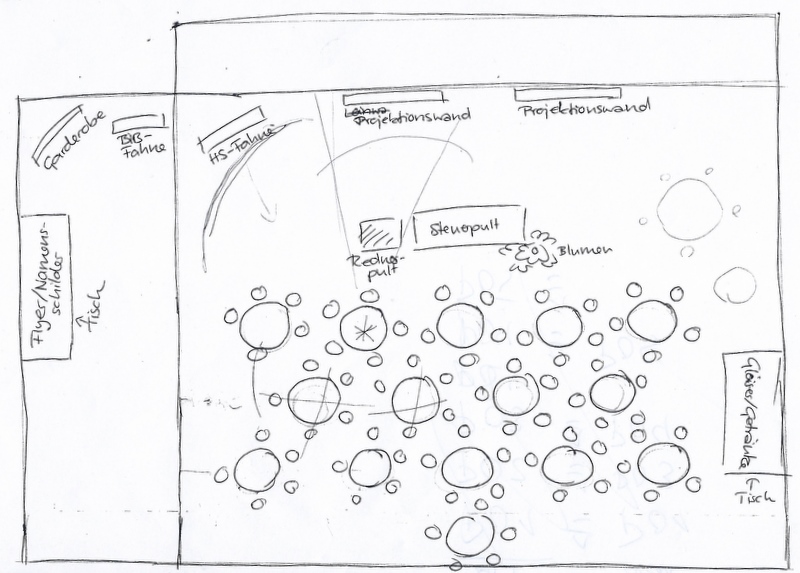 Garderobe
BIB-
Fahne
HS-Fahne
Leinwa
Projektionswand
Projektionswand
Steuerpult
Redner-
pult
Blumen
Flyer/Namens-
schilder
↑
Tisch
Gläser/Getränke
↑
Tisch